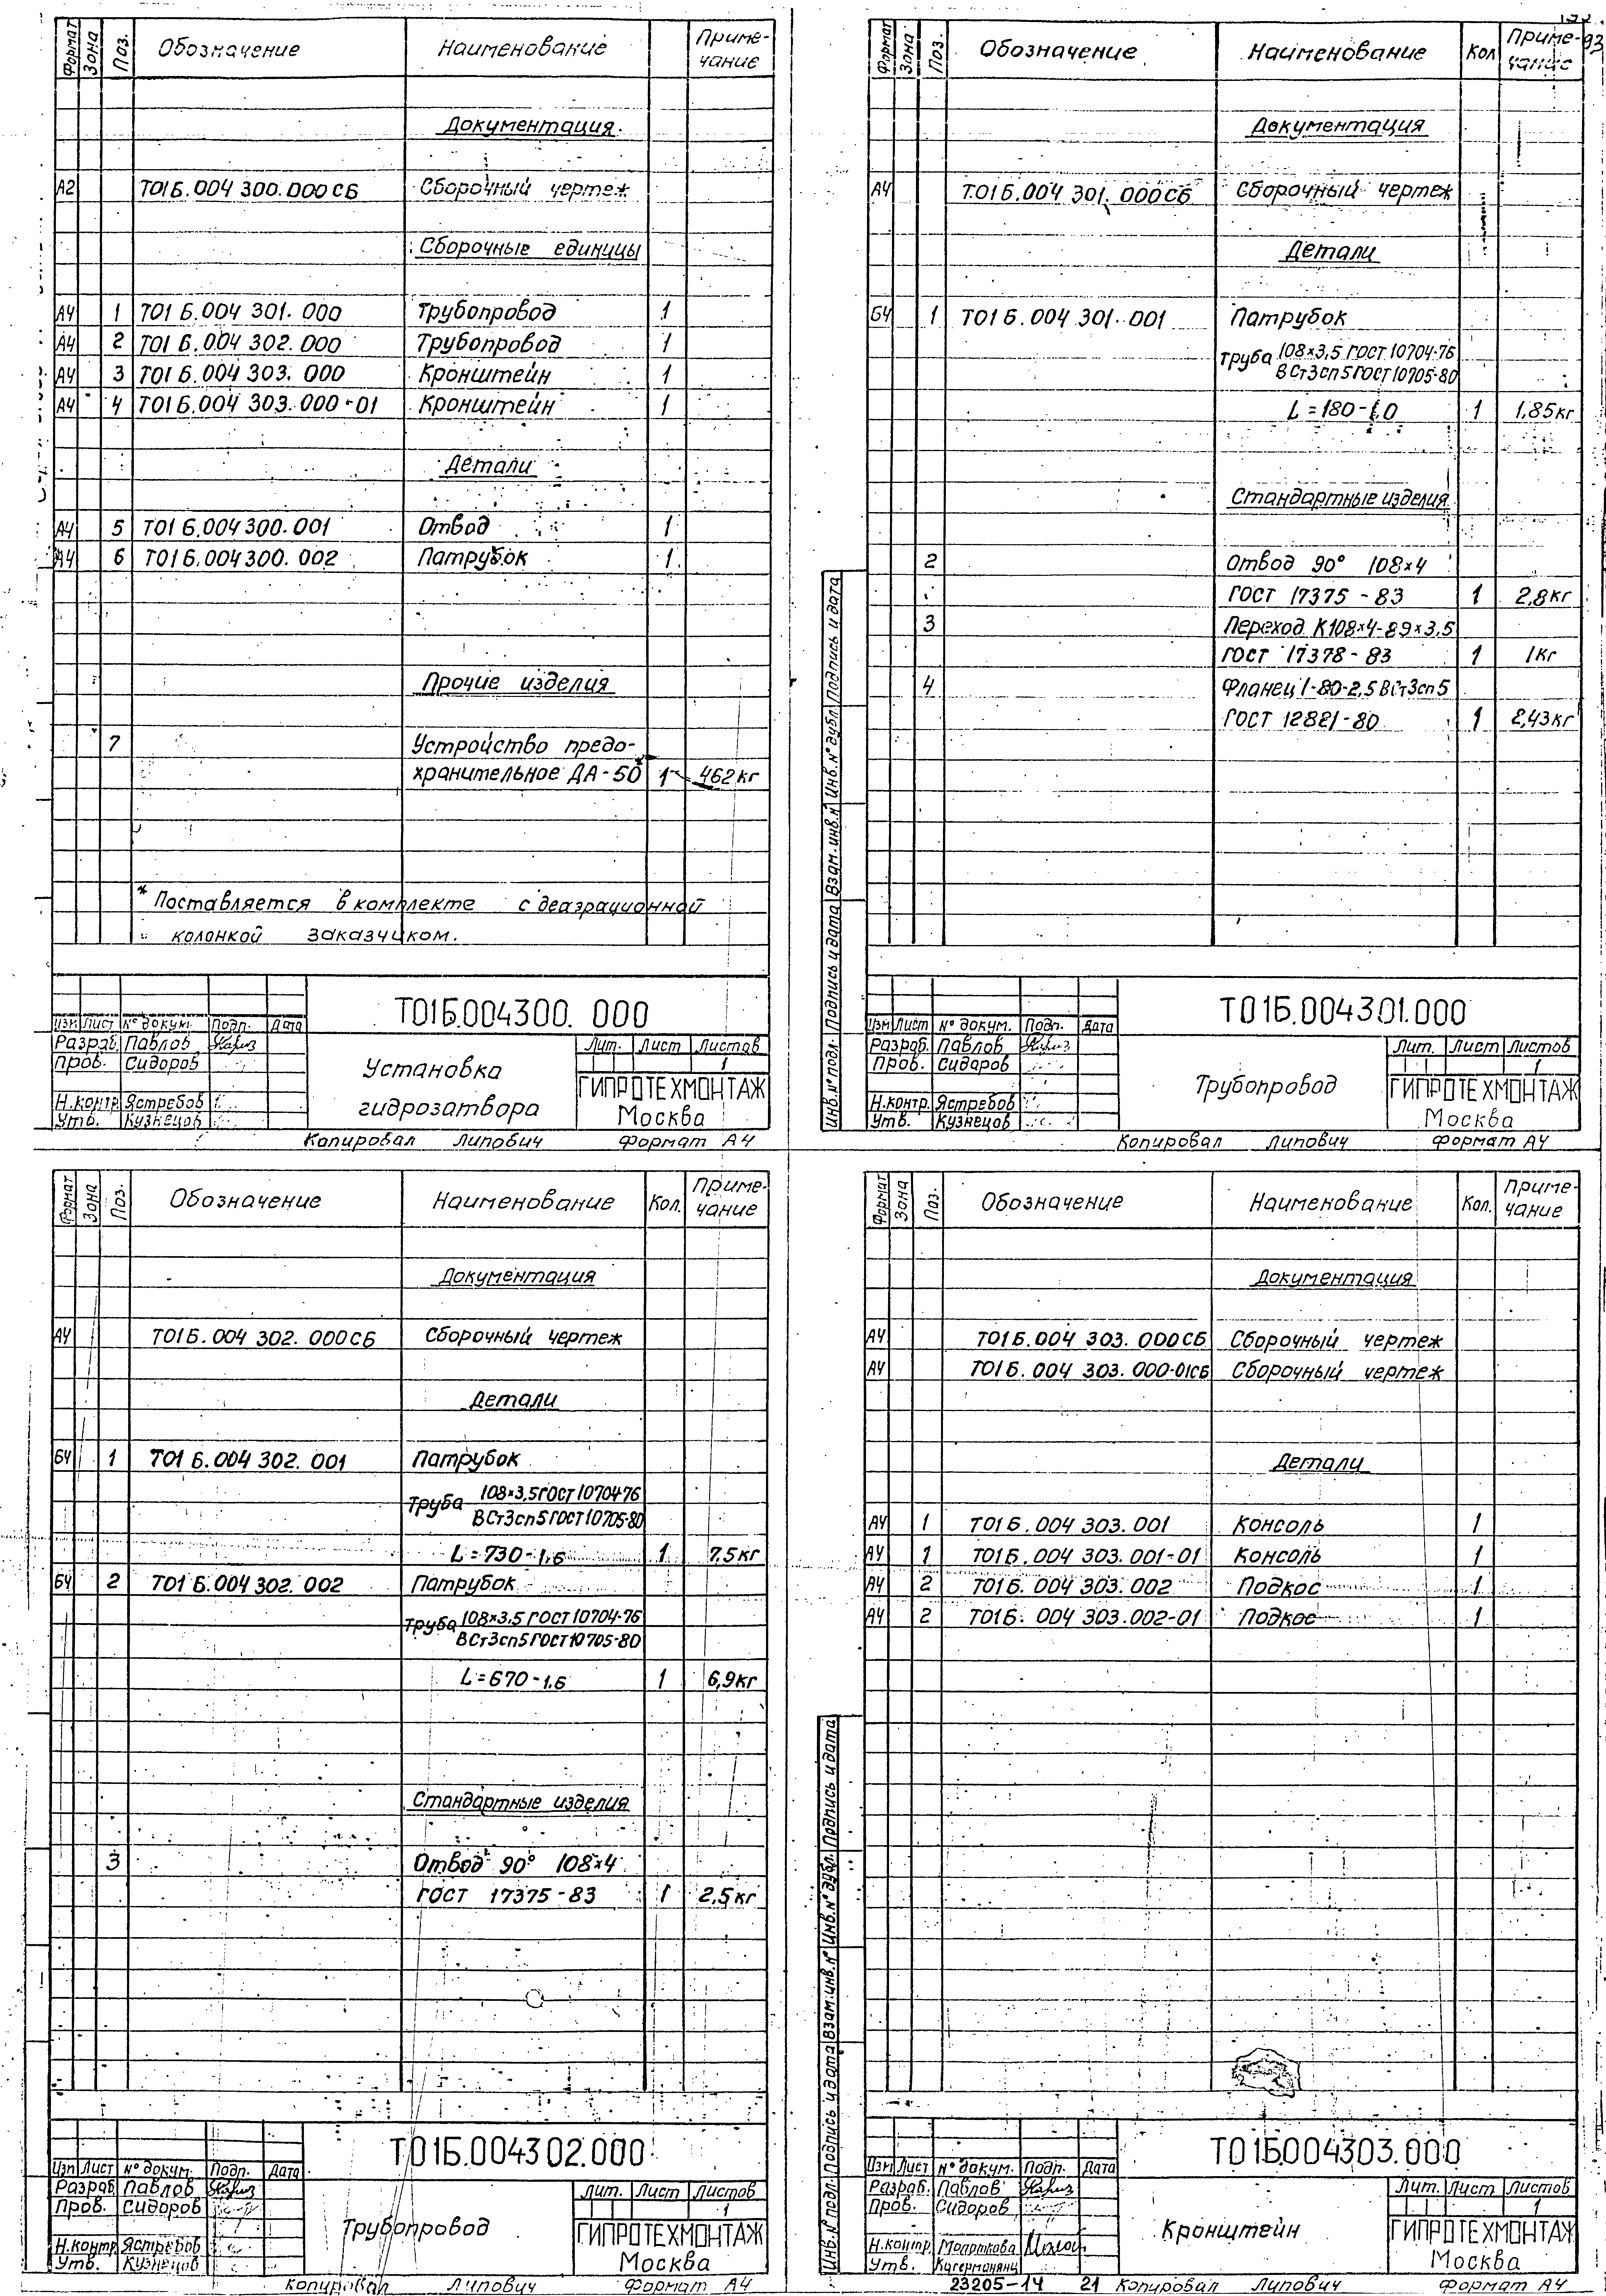 Формат Зона Поз. Обозначение Наименование Приме-
чание
Документация
А2 Т01Б.004 300.000СБ Сборочный чертеж
Сборочные единицы
А4 1 Т01Б.004 301.000 Трубопровод 1
А4 2 Т01Б.004 302.000 Трубопровод 1
А4 3 Т01Б.004 303.000 Кронштейн 1
А4 4 Т01Б.004 303.000-01 Кронштейн 1
Детали
А4 5 Т01Б.004300.001 Отвод 1
А4 6 Т01Б.004300.002 Патрубок 1
Прочие изделия
7 Устройство предо-
хранительное ДА-50 1 462кг
* Поставляется в комплекте с деаэрационной
колонкой заказчиком.
Т01Б.004300.000
Изм Лист № докум. Подп. Дата
Разраб. Павлов
Пров. Сидоров
Н.контр. Ястребов
Утв. Кузнецов
Установка
гидрозатвора
Лит. Лист Листов
1
ГИПРОТЕХМОНТАЖ
Москва
Копировал Липович Формат А4
93
Формат Зона Поз. Обозначение Наименование Кол Приме-
чание
Документация
А4 Т01Б.004 301.000СБ Сборочный чертеж
Детали
Б4 1 Т01Б.004 301.001 Патрубок
Труба 108×3,5 ГОСТ 10704-76
ВСт3сп5 ГОСТ 10705-80
L=180-1.0 1 1,85кг
Стандартные изделия
2 Отвод 90° 108×4
ГОСТ 17375-83 1 2,8кг
3 Переход К108×4-89×3,5
ГОСТ 17378-83 1 1кг
4 Фланец 1-80-2,5 ВСт3сп5
ГОСТ 12821-80 1 2,43кг
Инв.№ подл. Подпись и дата Взам.инв.№ Инв.№ дубл. Подпись и дата
Т01Б.004301.000
Изм Лист № докум. Подп. Дата
Разраб. Павлов
Пров. Сидоров
Н.контр. Ястребов
Утв. Кузнецов
Трубопровод
Лит. Лист Листов
1
ГИПРОТЕХМОНТАЖ
Москва
Копировал Липович Формат А4
Формат Зона Поз. Обозначение Наименование Кол. Приме-
чание
Документация
А4 Т01Б.004 302.000СБ Сборочный чертеж
Детали
Б4 1 Т01Б.004 302.001 Патрубок
Труба 108×3,5 ГОСТ 10704-76
ВСт3сп5 ГОСТ 10705-80
L=730-1,6 1 7,5кг
Б4 2 Т01Б.004 302.002 Патрубок
Труба 108×3,5 ГОСТ 10704-76
ВСт3сп5 ГОСТ 10705-80
L=670-1.6 1 6,9кг
Стандартные изделия
3 Отвод 90° 108×4
ГОСТ 17375-83 1 2,5кг
Т01Б.004302.000
Изм Лист № докум. Подп. Дата
Разраб. Павлов
Пров. Сидоров
Н.контр. Ястребов
Утв. Кузнецов
Трубопровод
Лит. Лист Листов
1
ГИПРОТЕХМОНТАЖ
Москва
Копировал Липович Формат А4
Формат Зона Поз. Обозначение Наименование Кол. Приме-
чание
Документация
А4 Т01Б.004 303.000СБ Сборочный чертеж
А4 Т01Б.004 303.000-01СБ Сборочный чертеж
Детали
А4 1 Т01Б.004 303.001 Консоль 1
А4 1 Т01Б.004 303.001-01 Консоль 1
А4 2 Т01Б.004 303.002 Подкос 1
А4 2 Т01Б.004 303.002-01 Подкос 1
Инв.№ подл. Подпись и дата Взам.инв.№ Инв.№ дубл. Подпись и дата
Т01Б004303.000
Изм Лист № докум. Подп. Дата
Разраб. Павлов
Пров. Сидоров
Н.контр.
Утв.
Кронштейн
Лит. Лист Листов
1
ГИПРОТЕХМОНТАЖ
Москва
23205-14 21 Копировал Липович Формат А4